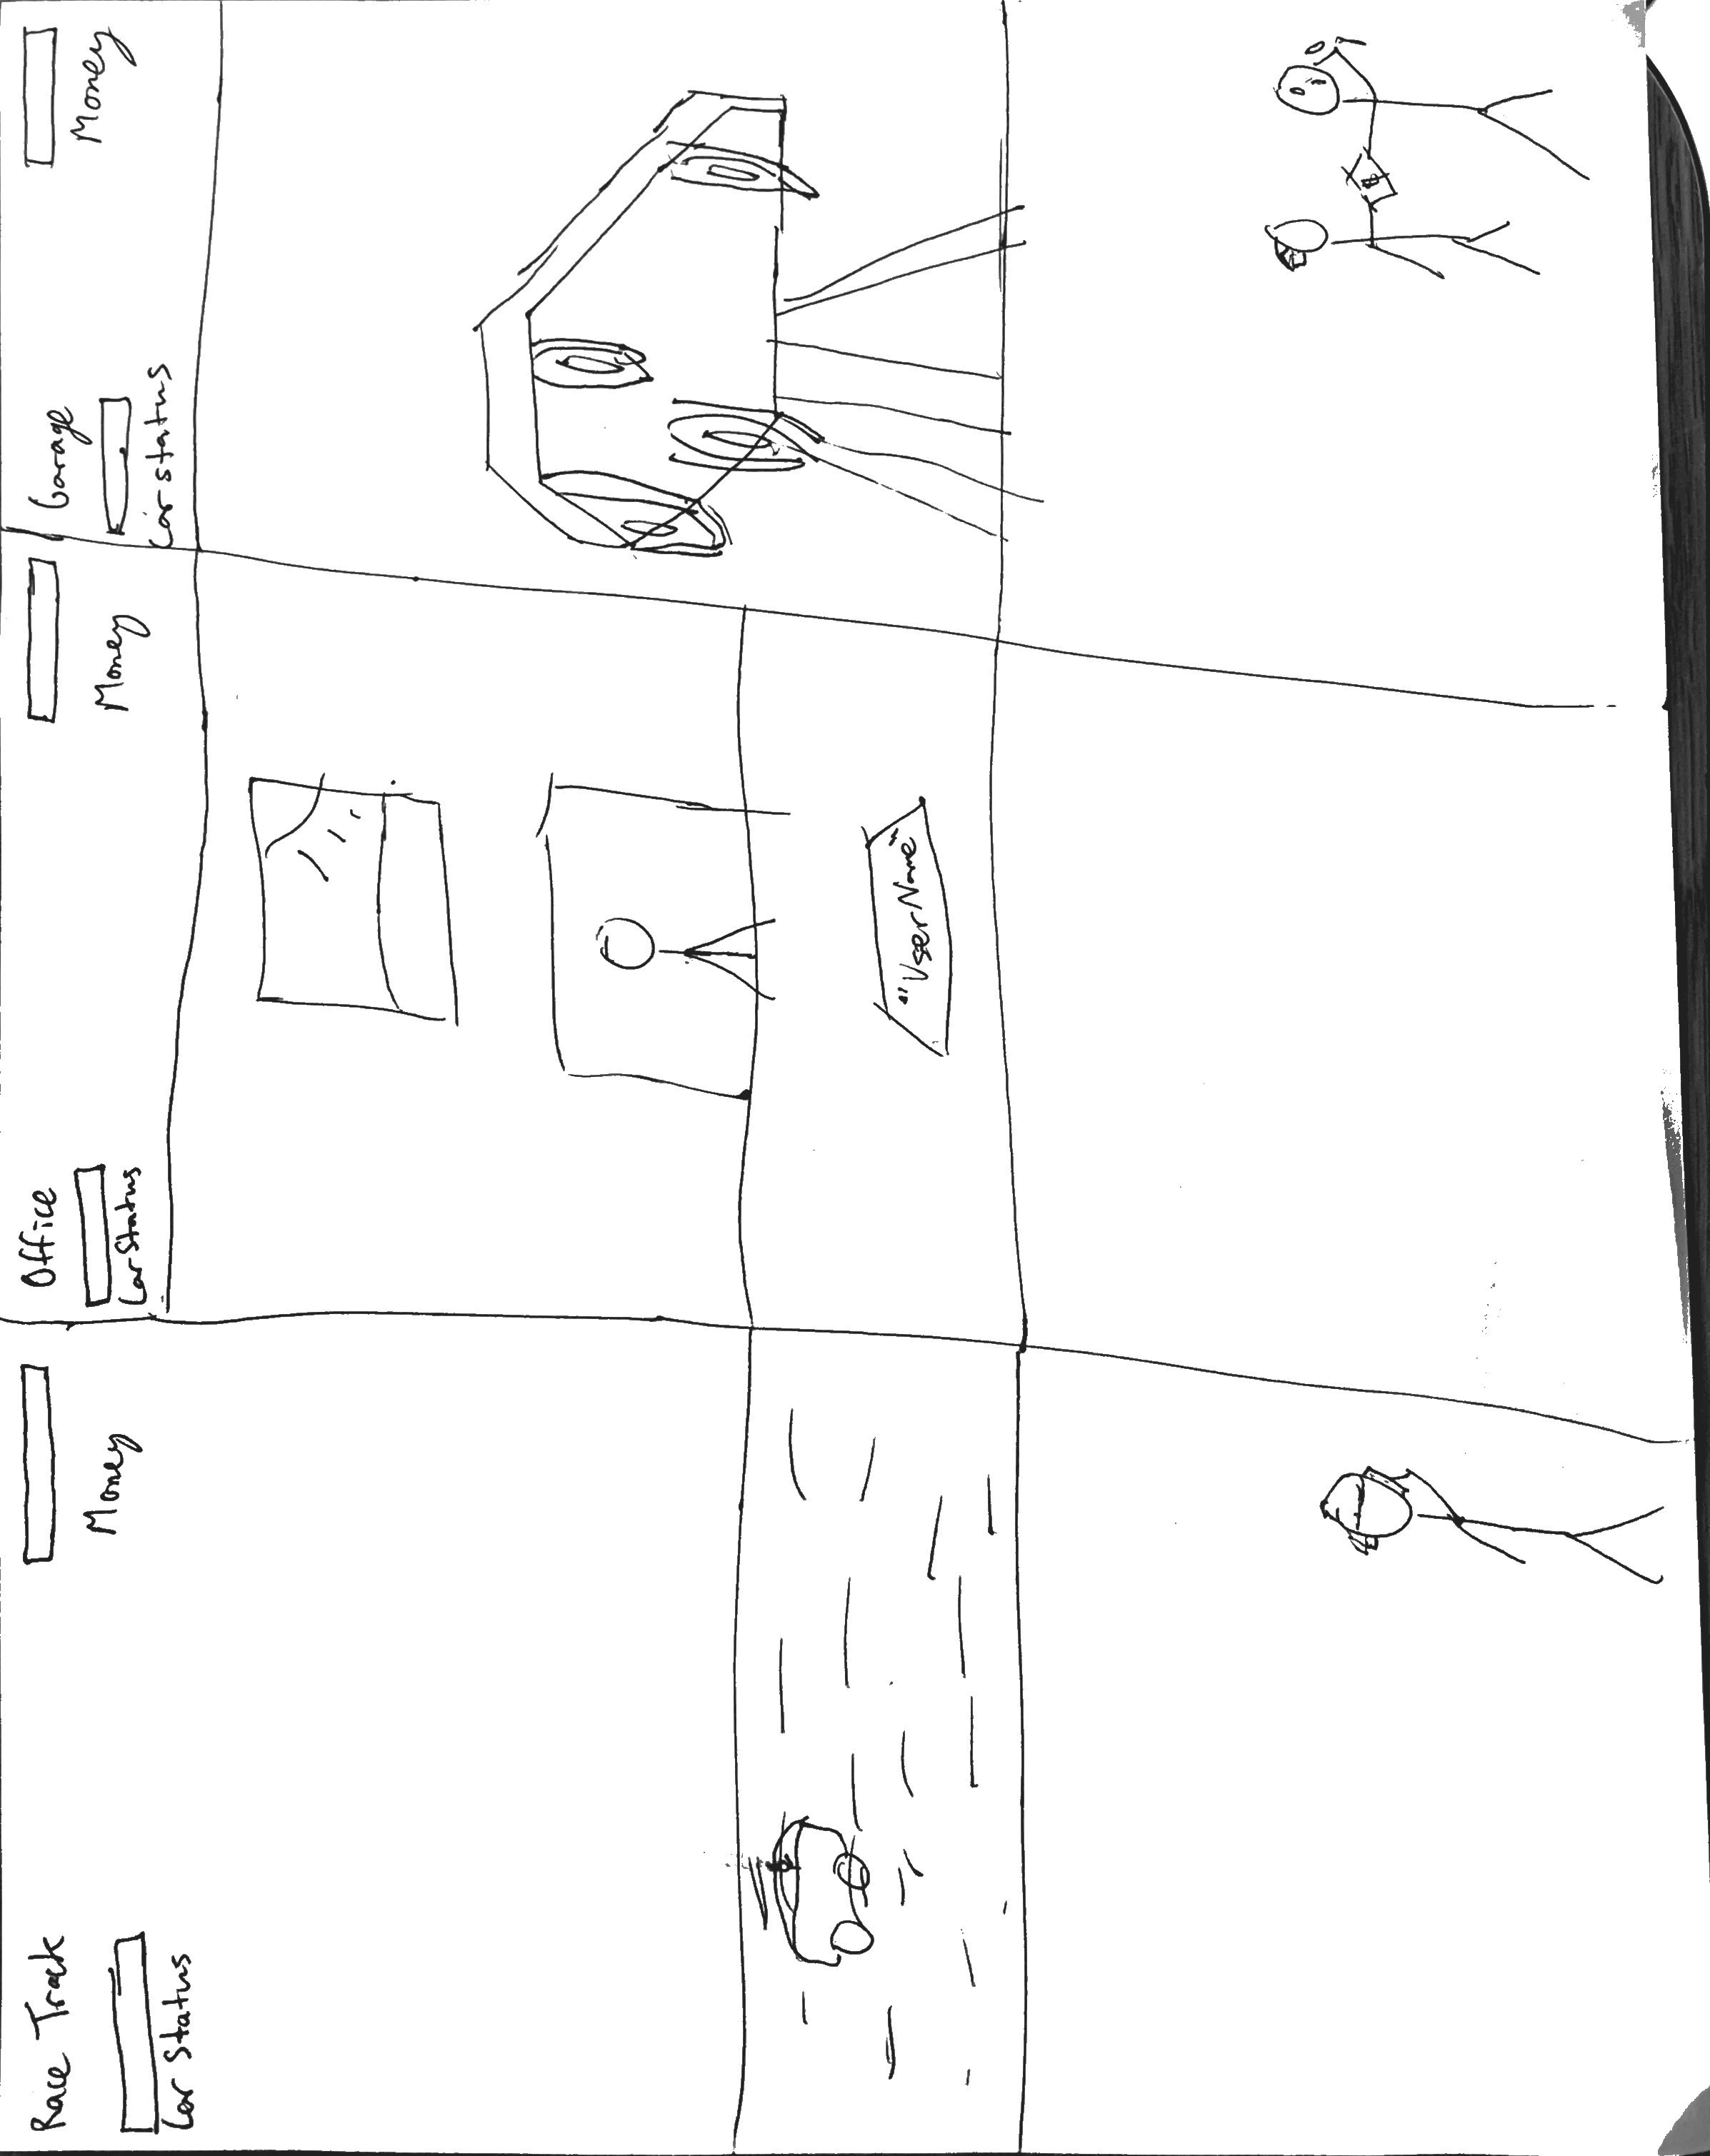 Race Track
Money
Car Status
Office
Money
Car Status
"UserName"
Garage
Money
Car status
$